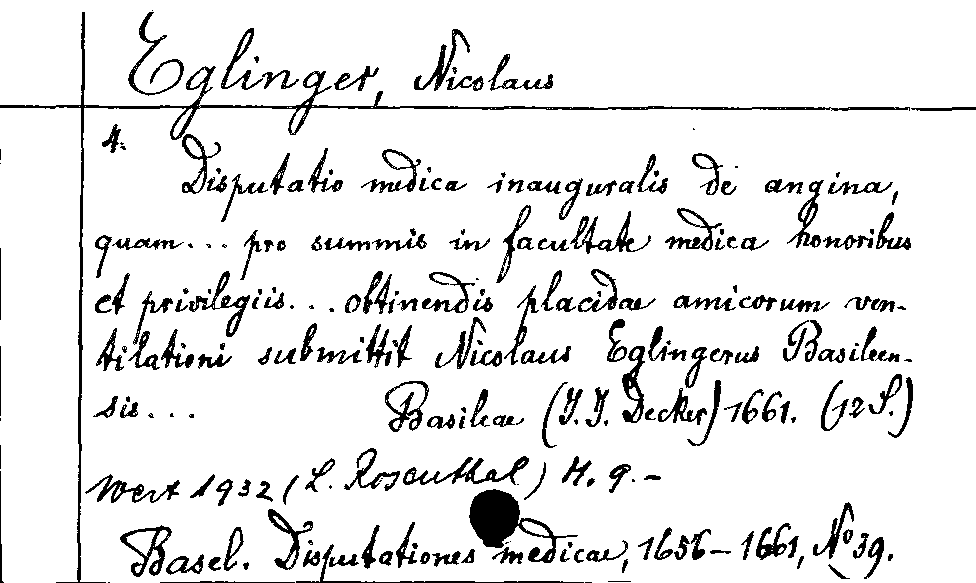 Eglinger, Nicolaus
4.
Disputatio medica inauguralis de angina,
quam... pro summis in facultate medica honoribus
et privilegiis... obtinendis placidae amicorum ven-
tilationi submittit Nicolaus Eglingerus Basileen-
sis... Basileae (J. J. Decker) 1661. (12 S.)
Wert 1932 (L. Rosenthal) M. 9.-
Basel. Disputationes medicae, 1656-1661, No 39.